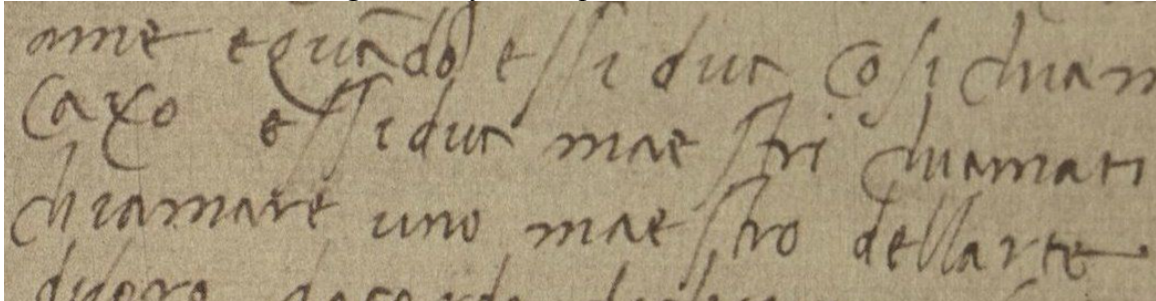 ame equãdo essi dua cosi chiam
caxo essi dua maestri chiamati
chiamare uno maestro dellarte